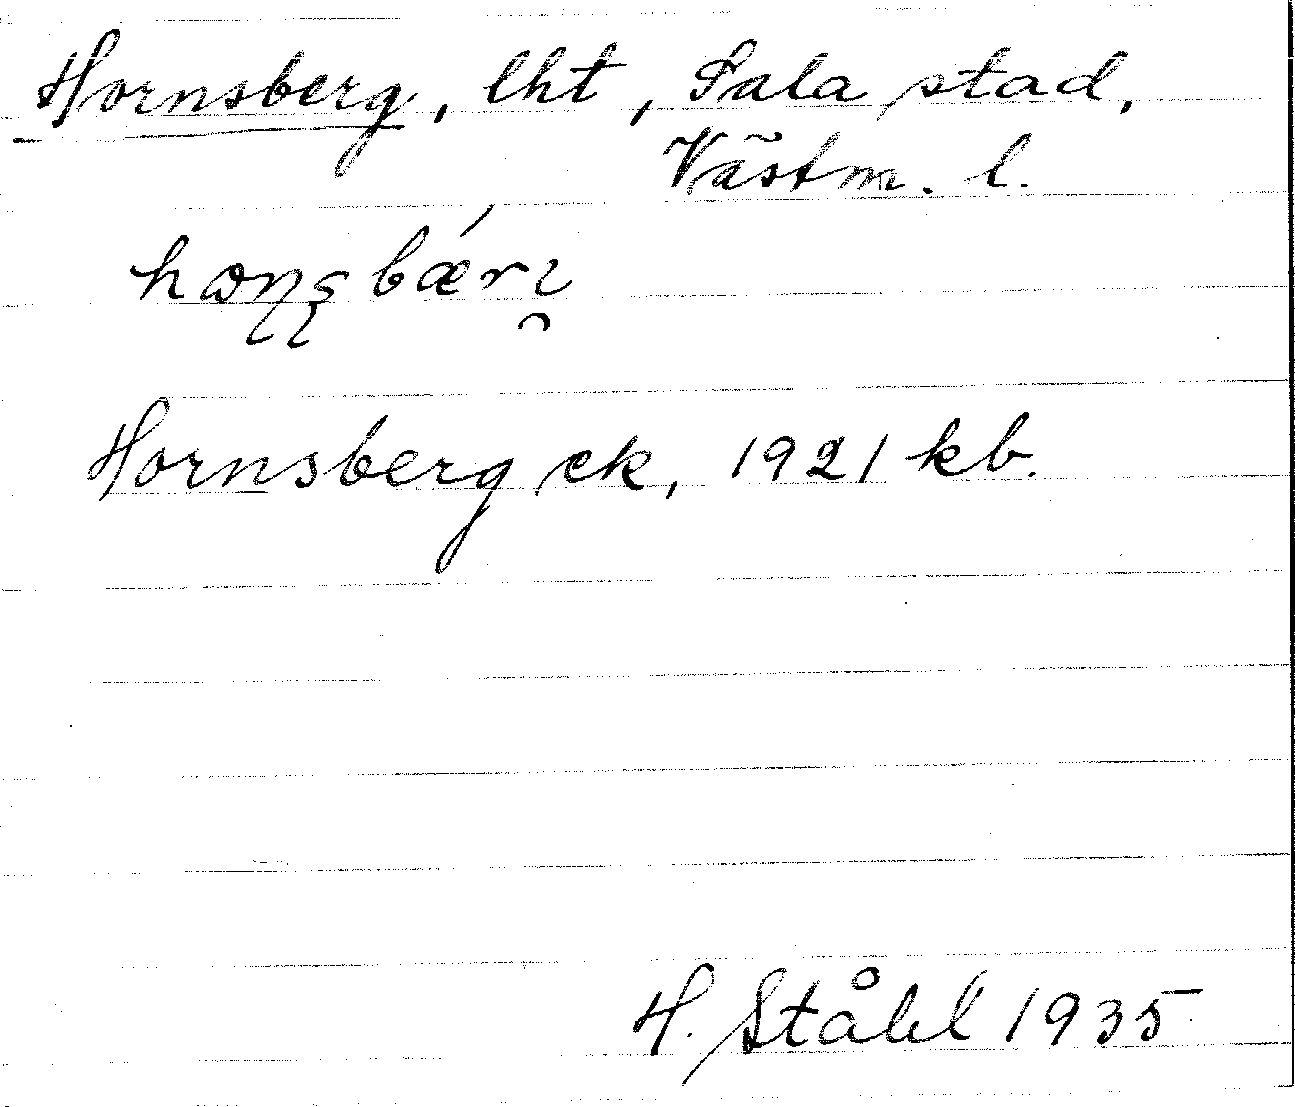 Hornsberg, lht, Sala stad,
Västm. l.
Hornsberg ek, 1921 kb.
H. Ståhl 1935